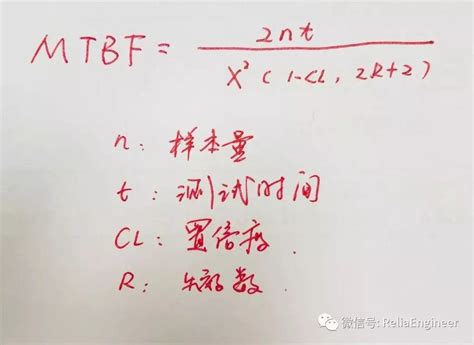 MTBF = 2nt
X² ( 1-CL, 2R+2 )
n: 样本量
t: 测试时间
CL: 置信度.
R: 失效数.
微信号: ReliaEngineer